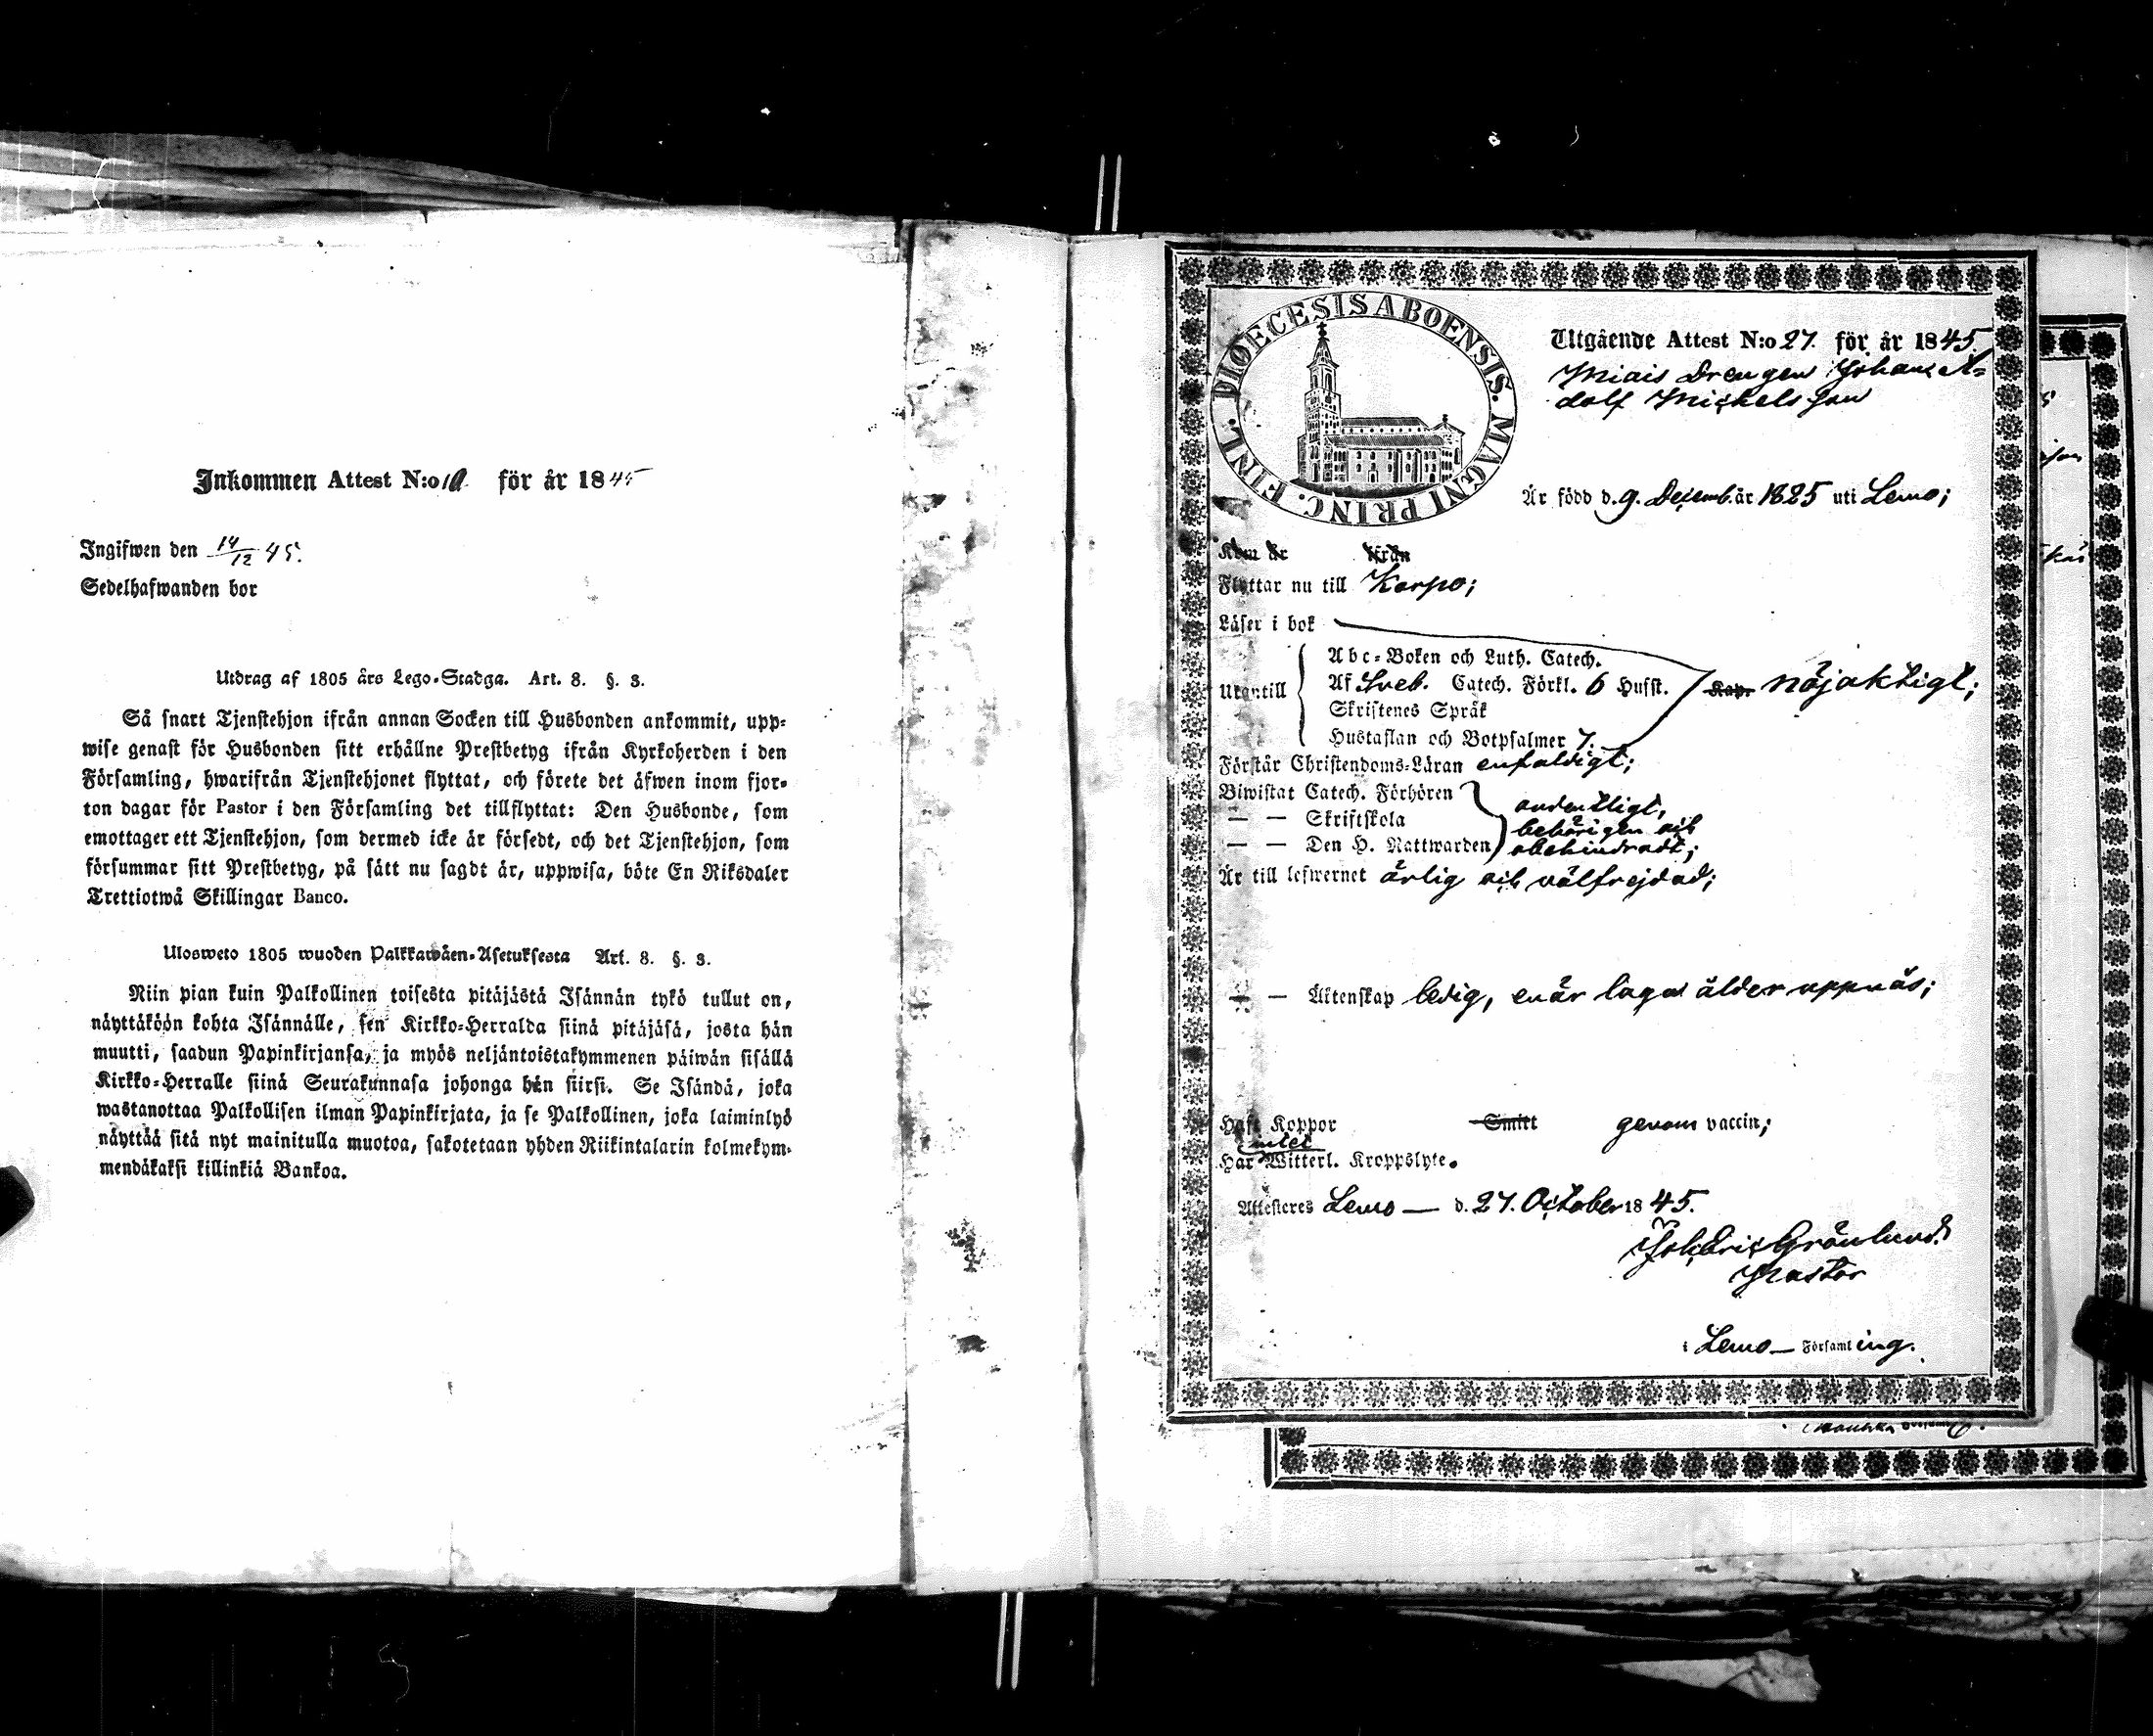 Inkommen Attest N:o 10 för år 1845
Ingifwen den 14/12 45.
Sedelhafwanden bor
Utdrag af 1805 års Lego-Stadga. Art. 8. §. 3.
Så snart Tjenstehjon ifrån annan Socken till Husbonden ankommit, upp-
wise genast för Husbonden sitt erhållne Prestbetyg ifrån Kyrkoherden i den
Församling, hwarifrån Tjenstehjonet flyttat, och förete det äfwen inom fjor-
ton dagar för Pastor i den Församling det tillflyttat: Den Husbonde, som
emottager ett Tjenstehjon, som dermed icke är försedt, och det Tjenstehjon, som
försummar sitt Prestbetyg, på sätt nu sagdt är, uppwisa, böte En Riksdaler
Trettiotwå Skillingar Banco.
Ulosweto 1805 wuoden Palkkawäen-Asetuksesta Art. 8. §. 3.
Niin pian kuin Palkollinen toisesta pitäjästä Isännän tykö tullut on,
näyttäköön kohta Isännälle, sen Kirkko-Herralda siinä pitäjäsä, josta hän
muutti, saadun Papinkirjansa, ja myös neljäntoistakymmenen päiwän sisällä
Kirkko-Herralle siinä Seurakunnasa johonga hän siirsi. Se Isändä, joka
wastanottaa Palkollisen ilman Papinkirjata, ja se Palkollinen, joka laiminlyö
näyttää sitä nyt mainitulla muotoa, sakotetaan yhden Riikintalarin kolmekym-
mendäkaksi killinkiä Bankoa.
DIOECESIS ABOENSIS. MAGNI PRINC. FINL.
Utgående Attest N:o 27. för år 1845.
Drengen Johan A-
dolf Michelsson
Är född d. 9. Decemb. år 1825 uti Lemo;
Kom år Ifrån
Flyttar nu till Korpo;
Läser i bok
Utantill
Abc-Boken och Luth. Catech.
Af Sveb. Catech. Förkl. 6 Husst. Kap. nöjaktigt;
Skriftenes Språk
Hustaflan och Botpsalmer 7.
Förstår Christendoms-Läran enfaldigt;
Biwistat Catech. Förhören ordentligt,
— — Skriftskola behörigen och
— — Den H. Nattwarden obehindradt;
Är till lefwernet ärlig och välfrejdad;
— — Äktenskap ledig, enär laga ålder uppnås;
Haft Koppor Smitt genom vaccin;
intet
Har Witterl. Kroppslyte.
Attesteres Lemo — d. 27. October 1845.
Joh. Eric Grönlund
Pastor
i Lemo — Församling.